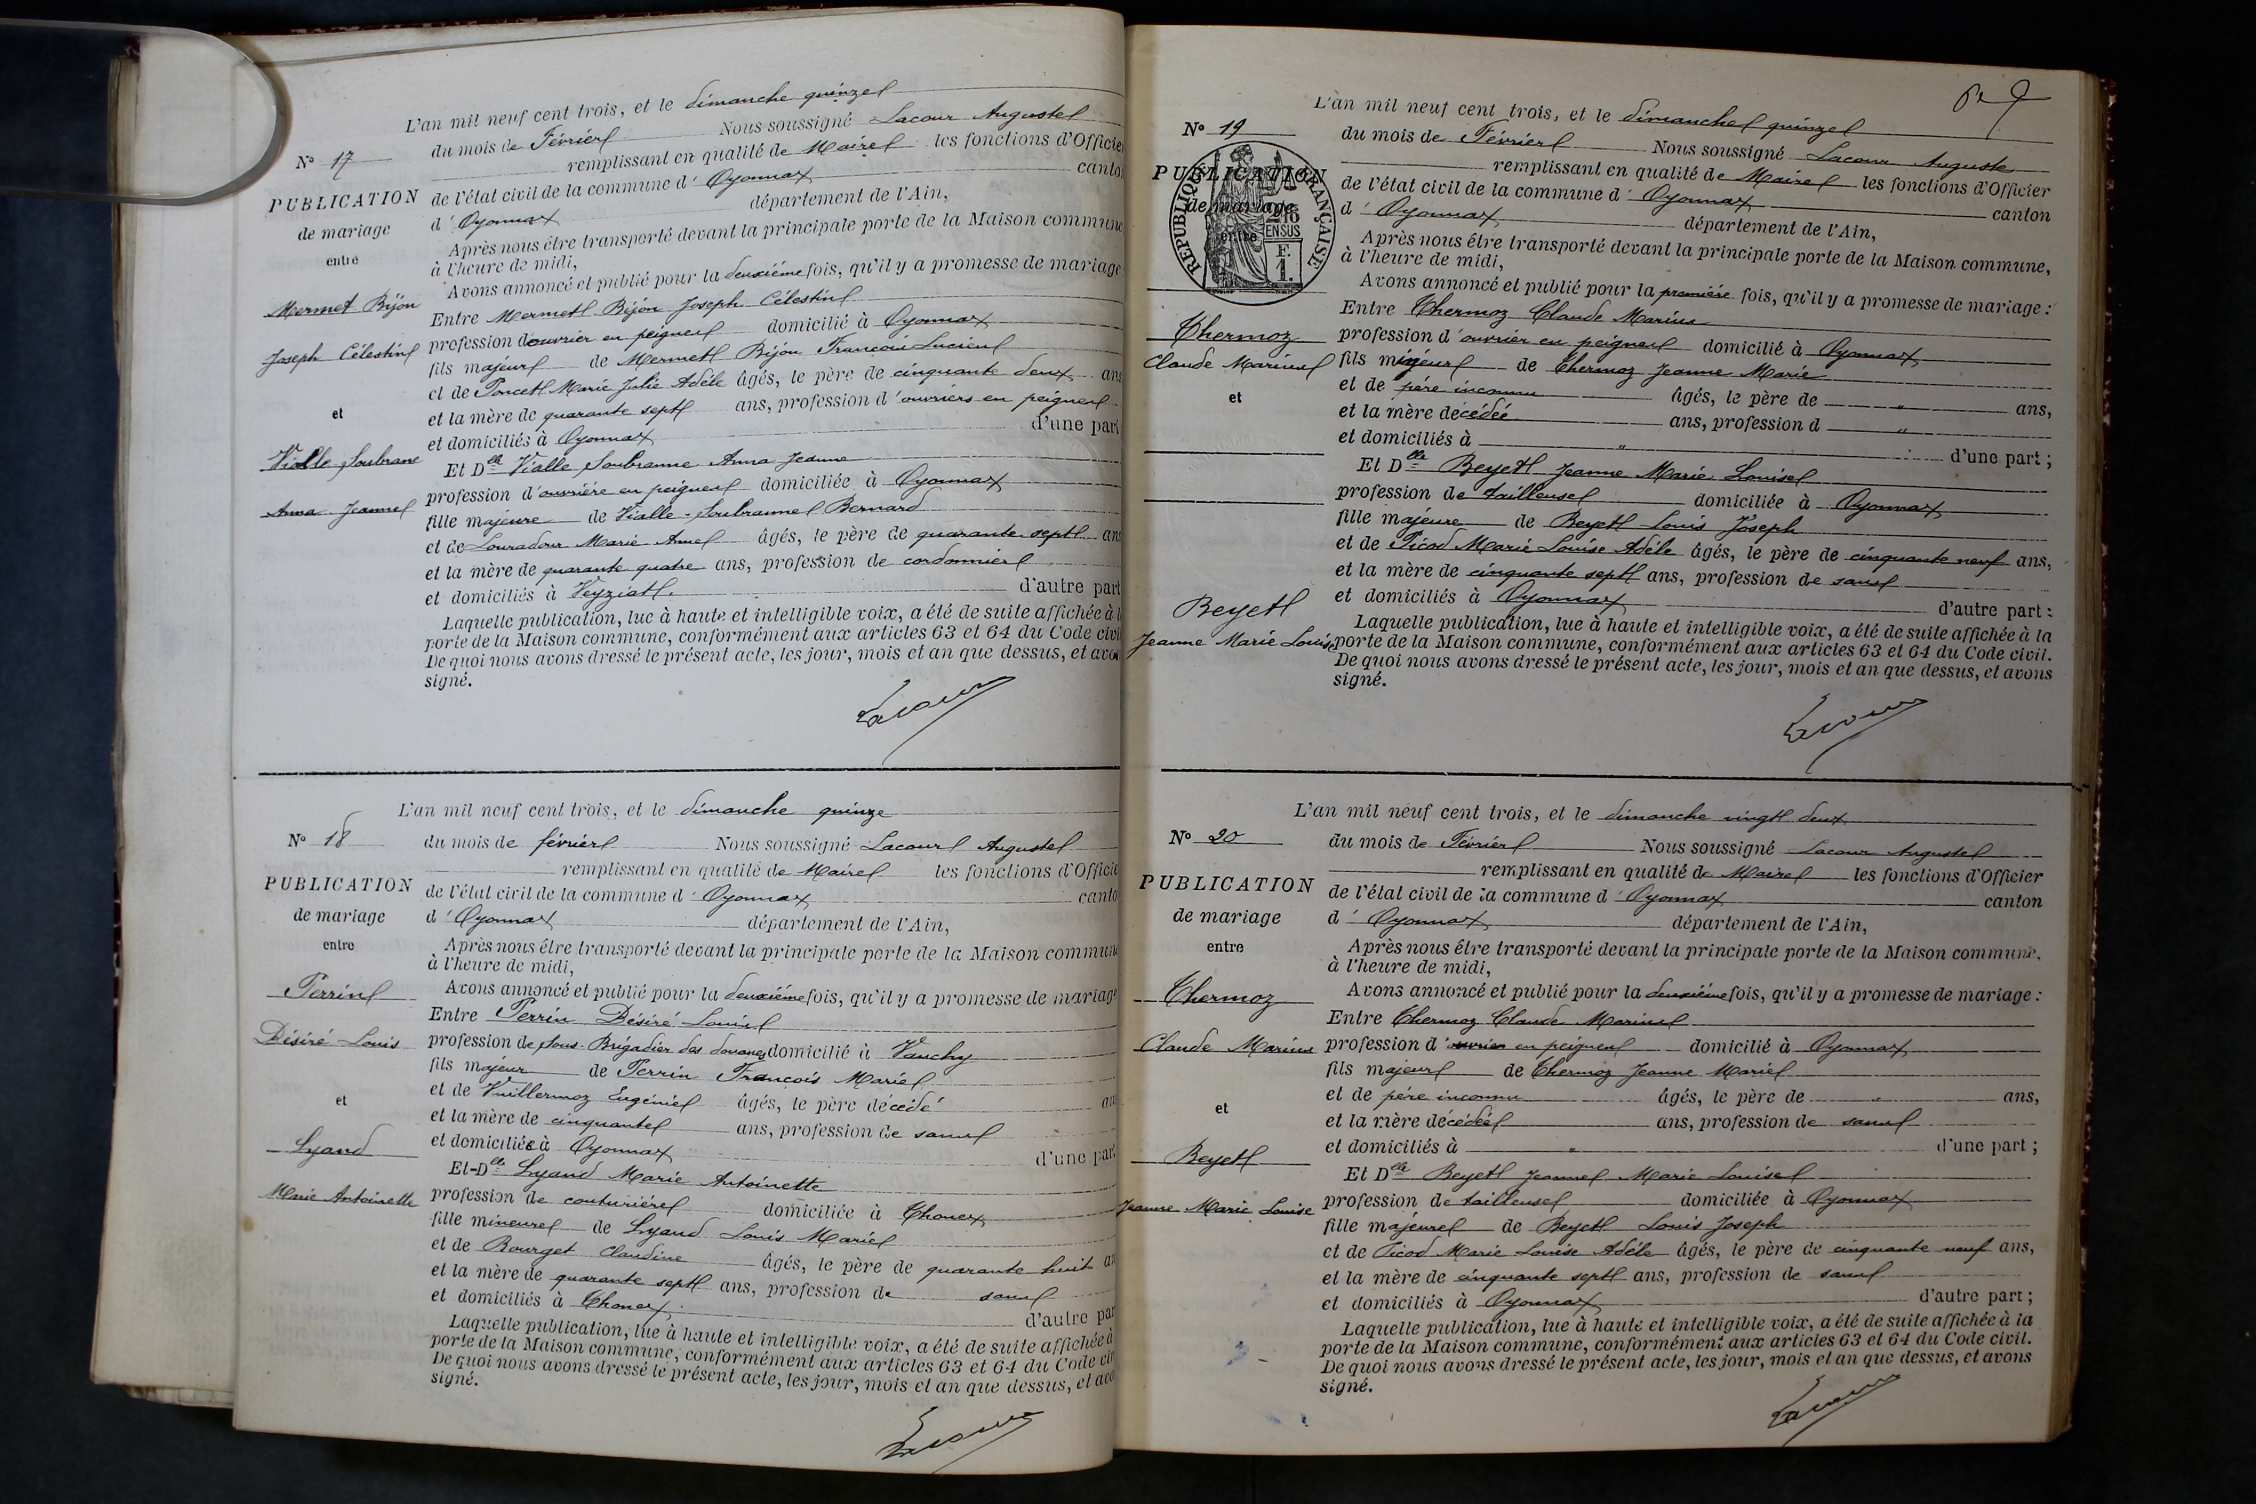 L'an mil neuf cent trois, et le dimanche quinze
N° 17
du mois de Février Nous soussigné Lacour Auguste
remplissant en qualité de Maire les fonctions d'Officie
PUBLICATION
de mariage
entre
de l'état civil de la commune d' Oyonnax canto
d' Oyonnax département de l'Ain,
Après nous être transporté devant la principale porte de la Maison commune
à l'heure de midi,
Avons annoncé et publié pour la deuxième fois, qu'il y a promesse de mariage
Mermet Bijon
Joseph Célestin
et
Vialle Soubrane
Anna Jeanne
Entre Mermet Bijon Joseph Célestin
profession d'ouvrier en peignes domicilié à Oyonnax
fils majeur de Mermet Bijon François Lucien
et de Poncet Marie Julie Adèle âgés, le père de cinquante deux ans
et la mère de quarante sept ans, profession d'ouvriers en peignes
et domiciliés à Oyonnax d'une part
Et Dlle Vialle Soubranne Anna Jeanne
profession d'ouvrière en peignes domiciliée à Oyonnax
fille majeure de Vialle-Soubranne Bernard
et de Louradour Marie Anne âgés, le père de quarante sept ans
et la mère de quarante quatre ans, profession de cordonnier
et domiciliés à Veyziat. d'autre part
Laquelle publication, lue à haute et intelligible voix, a été de suite affichée à l
porte de la Maison commune, conformément aux articles 63 et 64 du Code civil
De quoi nous avons dressé le présent acte, les jour, mois et an que dessus, et avon
signé.
Lacour
L'an mil neuf cent trois, et le dimanche quinze
N° 18
du mois de février Nous soussigné Lacour Auguste
remplissant en qualité de Maire les fonctions d'Officie
PUBLICATION
de mariage
entre
de l'état civil de la commune d' Oyonnax canto
d' Oyonnax département de l'Ain,
Après nous être transporté devant la principale porte de la Maison commun
à l'heure de midi,
Avons annoncé et publié pour la deuxième fois, qu'il y a promesse de mariage
Perrin
Désiré Louis
et
Lyand
Marie Antoinette
Entre Perrin Désiré Louis
profession de Sous-Brigadier des douanes domicilié à Vanchy
fils majeur de Perrin François Marie
et de Vuillermoz Eugénie âgés, le père décédé an
et la mère de cinquante ans, profession de sans
et domiciliés à Oyonnax d'une part
Et Dlle Lyand Marie Antoinette
profession de couturière domiciliée à Thonex
fille mineure de Lyand Louis Marie
et de Bourget Claudine âgés, le père de quarante huit an
et la mère de quarante sept ans, profession de sans
et domiciliés à Thonex. d'autre par
Laquelle publication, lue à haute et intelligible voix, a été de suite affichée à
porte de la Maison commune, conformément aux articles 63 et 64 du Code civ
De quoi nous avons dressé le présent acte, les jour, mois et an que dessus, et avo
signé.
Lacour
L'an mil neuf cent trois, et le dimanche quinze
N° 19
du mois de Février Nous soussigné Lacour Auguste
remplissant en qualité de Maire les fonctions d'Officier
PUBLICATION
de mariage
entre
RÉPUBLIQUE FRANÇAISE
2/10
EN SUS
F.
1.
de l'état civil de la commune d' Oyonnax canton
d' Oyonnax département de l'Ain,
Après nous être transporté devant la principale porte de la Maison commune,
à l'heure de midi,
Avons annoncé et publié pour la première fois, qu'il y a promesse de mariage :
Thermoz
Claude Marius
et
Beyet
Jeanne Marie Louise
Entre Thermoz Claude Marius
profession d'ouvrier en peignes domicilié à Oyonnax
fils majeur de Thermoz Jeanne Marie
et de père inconnu âgés, le père de " ans,
et la mère décédée ans, profession d "
et domiciliés à " d'une part ;
Et Dlle Beyet Jeanne Marie Louise
profession de tailleuse domiciliée à Oyonnax
fille majeure de Beyet Louis Joseph
et de Picod Marie Louise Adèle âgés, le père de cinquante neuf ans,
et la mère de cinquante sept ans, profession de sans
et domiciliés à Oyonnax d'autre part :
Laquelle publication, lue à haute et intelligible voix, a été de suite affichée à la
porte de la Maison commune, conformément aux articles 63 et 64 du Code civil.
De quoi nous avons dressé le présent acte, les jour, mois et an que dessus, et avons
signé.
Lacour
L'an mil neuf cent trois, et le dimanche vingt deux
N° 20
du mois de Février Nous soussigné Lacour Auguste
remplissant en qualité de Maire les fonctions d'Officier
PUBLICATION
de mariage
entre
de l'état civil de la commune d' Oyonnax canton
d' Oyonnax département de l'Ain,
Après nous être transporté devant la principale porte de la Maison commune,
à l'heure de midi,
Avons annoncé et publié pour la deuxième fois, qu'il y a promesse de mariage :
Thermoz
Claude Marius
et
Beyet
Jeanne Marie Louise
Entre Thermoz Claude Marius
profession d'ouvrier en peignes domicilié à Oyonnax
fils majeur de Thermoz Jeanne Marie
et de père inconnu âgés, le père de " ans,
et la mère décédée ans, profession de sans
et domiciliés à " d'une part ;
Et Dlle Beyet Jeanne Marie Louise
profession de tailleuse domiciliée à Oyonnax
fille majeure de Beyet Louis Joseph
et de Picod Marie Louise Adèle âgés, le père de cinquante neuf ans,
et la mère de cinquante sept ans, profession de sans
et domiciliés à Oyonnax d'autre part ;
Laquelle publication, lue à haute et intelligible voix, a été de suite affichée à la
porte de la Maison commune, conformément aux articles 63 et 64 du Code civil.
De quoi nous avons dressé le présent acte, les jour, mois et an que dessus, et avons
signé.
Lacour